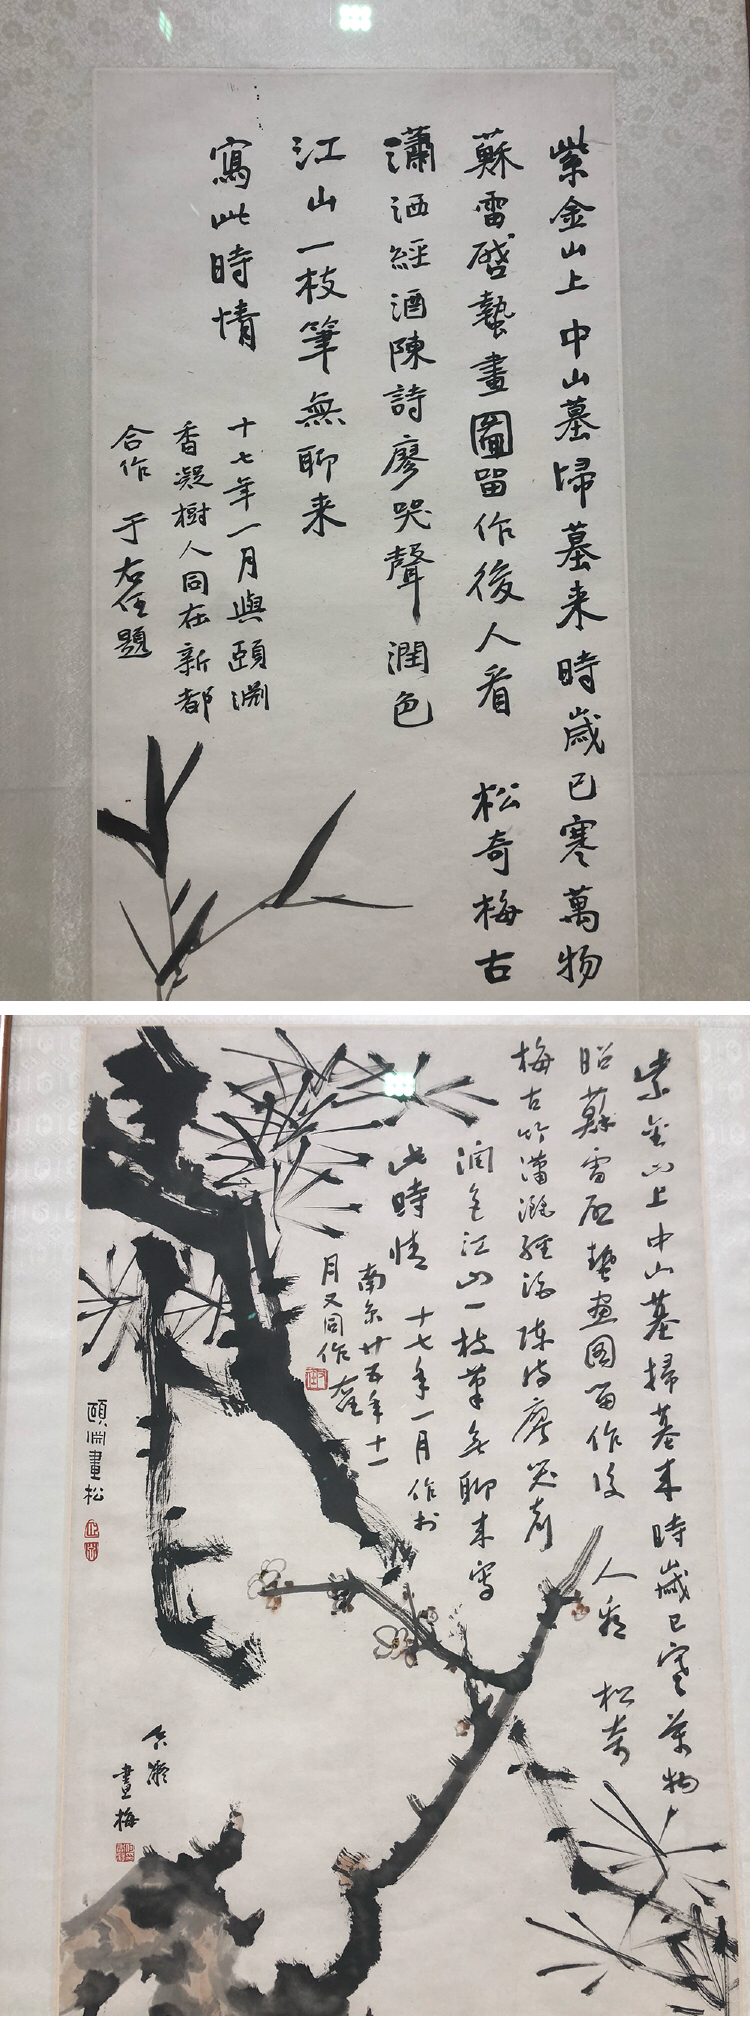 紫金山上中山墓埽墓来時歲已寒萬物
蘇雷啟蟄畫圖留作後人看 松奇梅古
瀟洒經酒陳詩廖哭聲潤色
江山一枝筆無聊来
寫此時情
十七年一月與頤淵
香凝樹人同在新都
合作 于右任題
紫金山上中山墓掃墓来時歲已寒萬物
昭蘇雷啟蟄畫圖留作後人看 松奇
梅古竹瀟灑經酒陳詩廖哭聲
潤色江山一枝筆無聊来寫
此時情 十七年一月作於
南京廿五年十一
月又同作 右任
頤淵畫松
香凝
畫梅